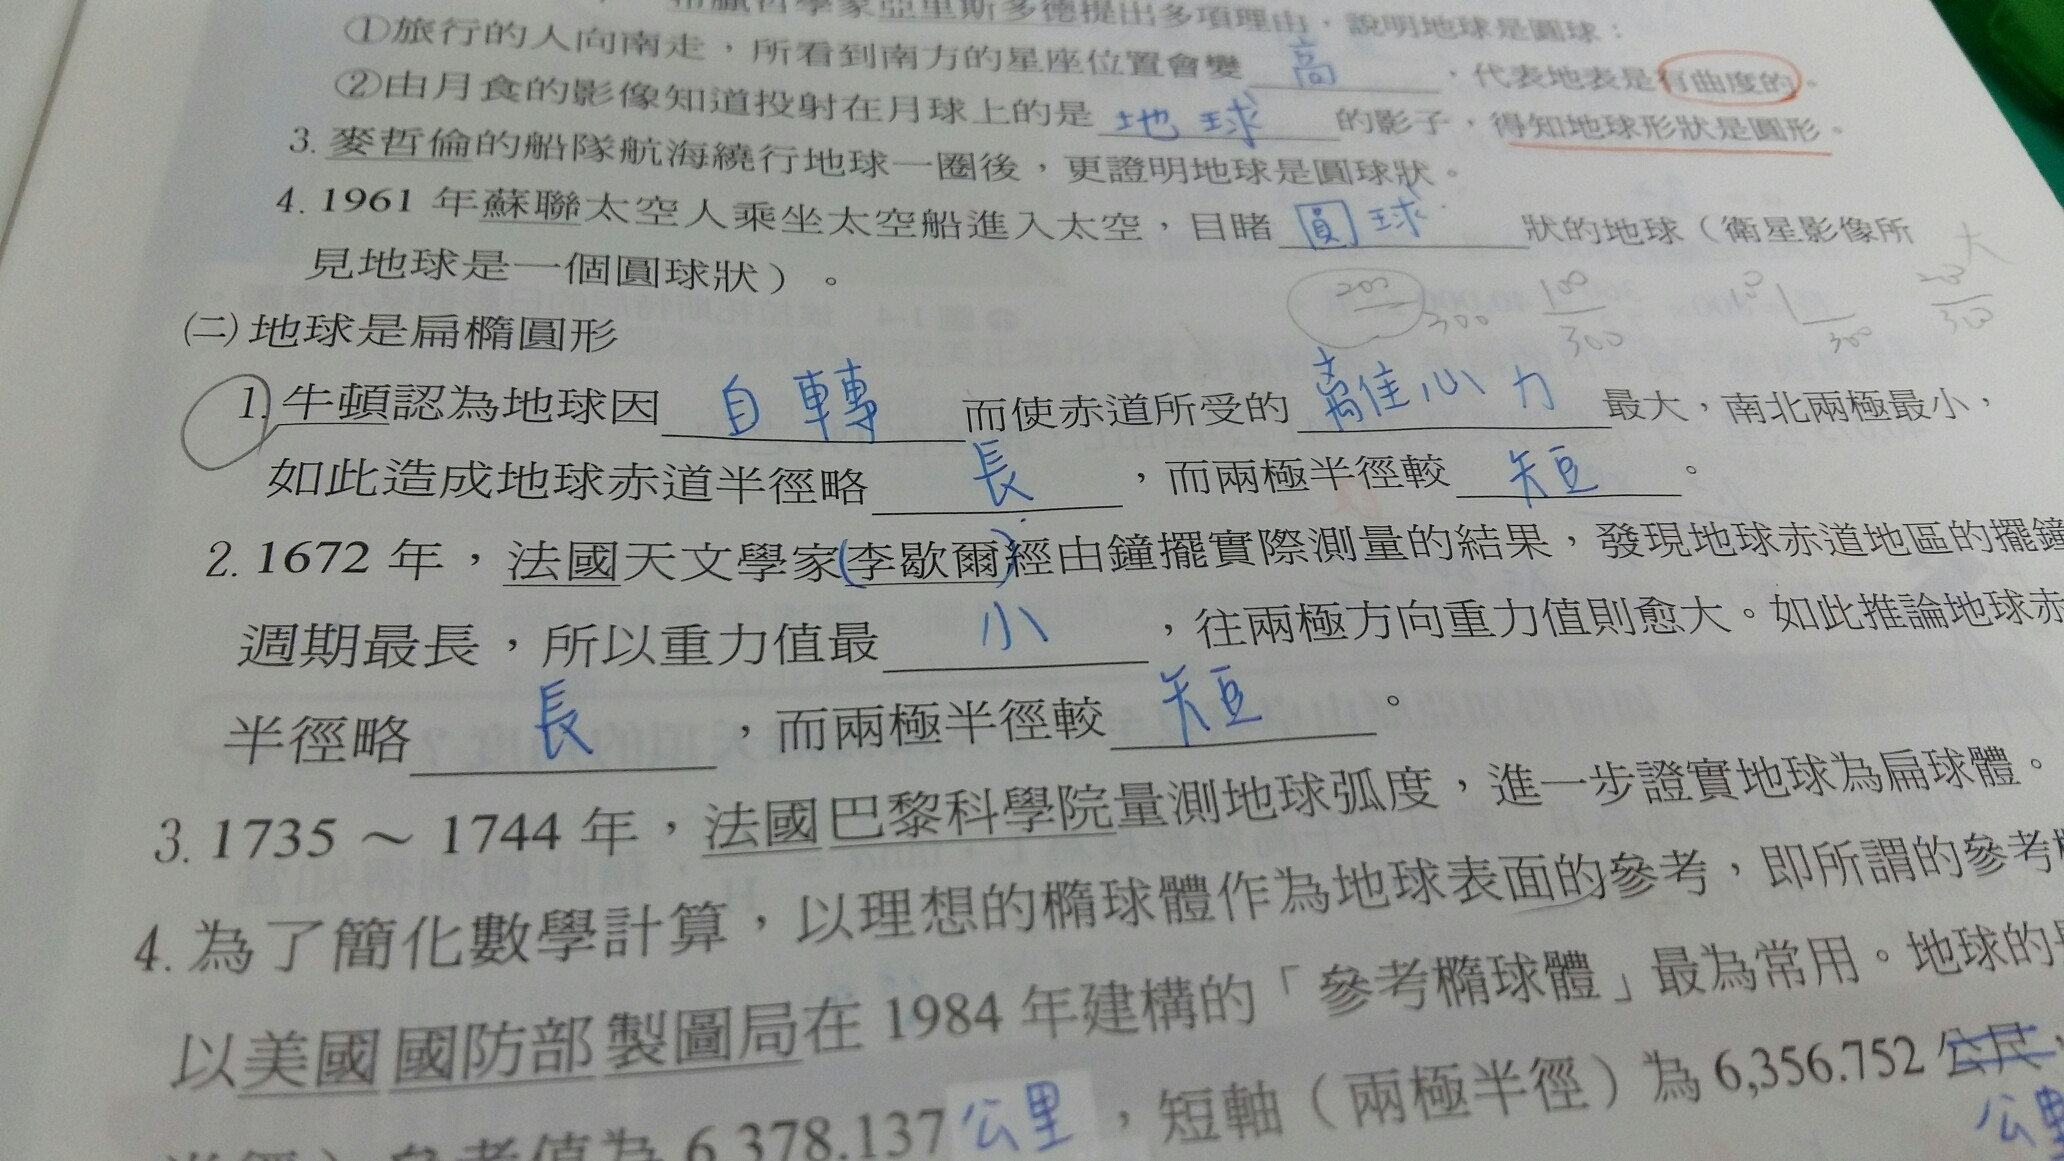 希臘哲學家亞里斯多德提出多項理由，說明地球是圓球：
①旅行的人向南走，所看到南方的星座位置會變 高 ，代表地表是有曲度的。
②由月食的影像知道投射在月球上的是 地球 的影子，得知地球形狀是圓形。
3. 麥哲倫的船隊航海繞行地球一圈後，更證明地球是圓球狀。
4. 1961 年蘇聯太空人乘坐太空船進入太空，目睹 圓球 狀的地球（衛星影像所
見地球是一個圓球狀）。
大
200/300 100/300 1/300
㈡地球是扁橢圓形
1. 牛頓認為地球因 自轉 而使赤道所受的 離心力 最大，南北兩極最小，
如此造成地球赤道半徑略 長 ，而兩極半徑較 短 。
2. 1672 年，法國天文學家(李歇爾)經由鐘擺實際測量的結果，發現地球赤道地區的擺鐘
週期最長，所以重力值最 小 ，往兩極方向重力值則愈大。如此推論地球赤
半徑略 長 ，而兩極半徑較 短 。
3. 1735 ～ 1744 年，法國巴黎科學院量測地球弧度，進一步證實地球為扁球體。
4. 為了簡化數學計算，以理想的橢球體作為地球表面的參考，即所謂的參考
以美國國防部製圖局在 1984 年建構的「參考橢球體」最為常用。地球的
參考值為 6,378.137 公里，短軸（兩極半徑）為 6,356.752 公尺，
公里